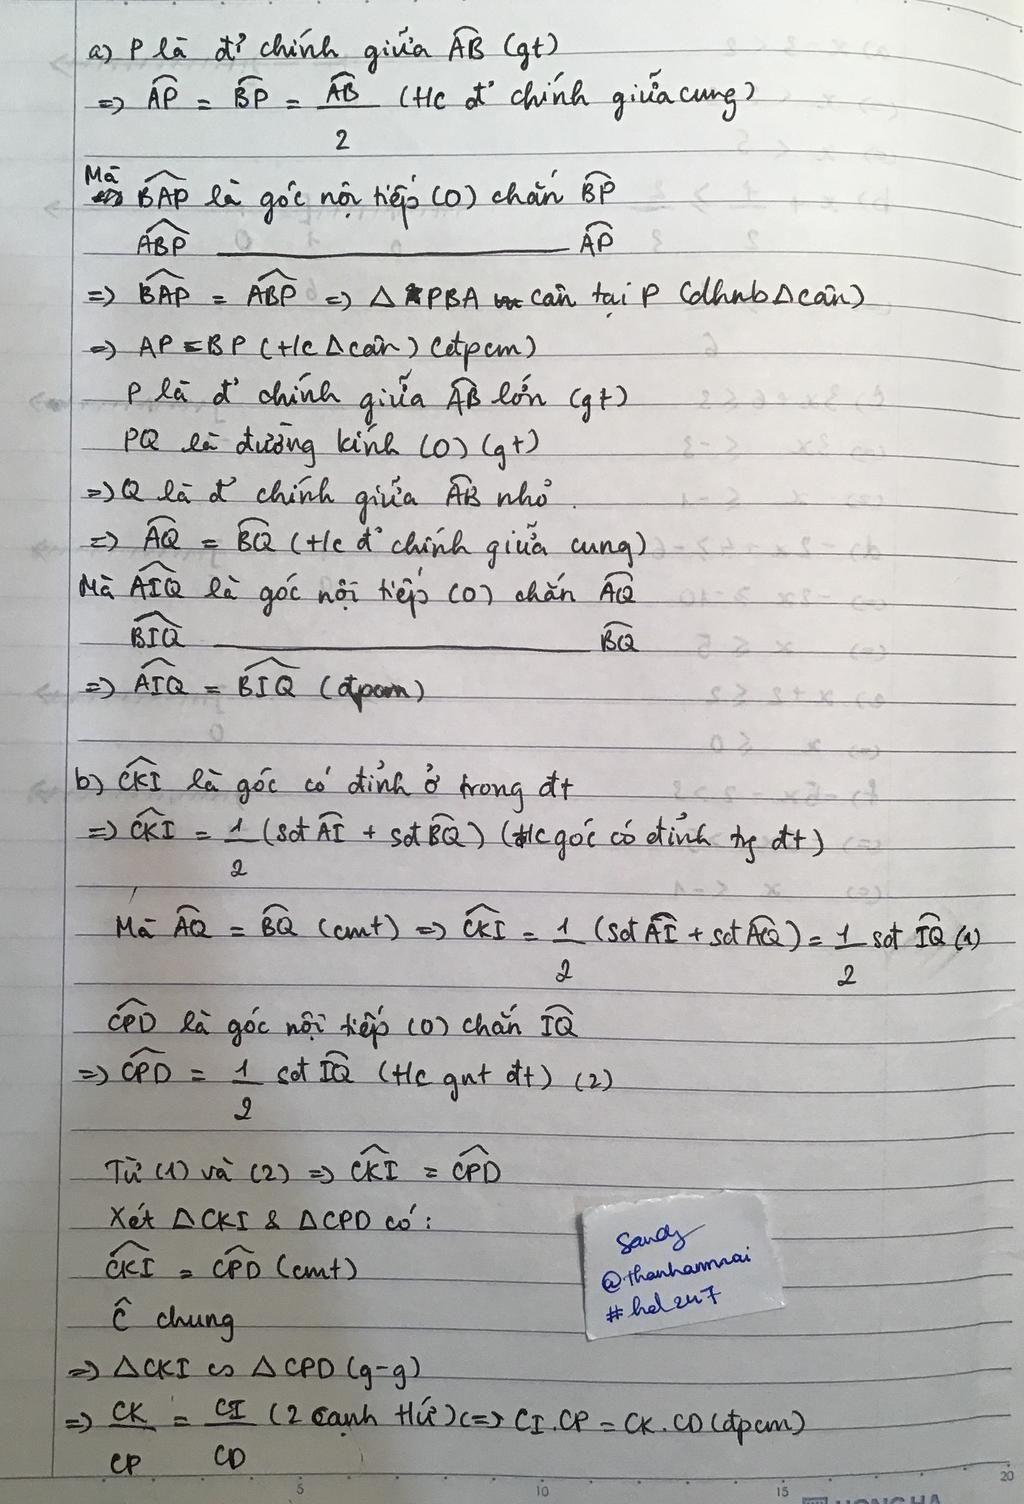 a) P là đ' chính giữa AB (gt)
=> AP = BP = AB/2 (t/c đ' chính giữa cung)
Mà BAP là góc nội tiếp (O) chắn BP
ABP ——— AP
=> BAP = ABP => Δ PBA cân tại P (dhnb Δ cân)
=> AP = BP (t/c Δ cân) (đpcm)
P là đ' chính giữa AB lớn (gt)
PQ là đường kính (O) (gt)
=> Q là đ' chính giữa AB nhỏ.
=> AQ = BQ (t/c đ' chính giữa cung)
Mà AIQ là góc nội tiếp (O) chắn AQ
BIQ ——— BQ
=> AIQ = BIQ (đpcm)
b) CKI là góc có đỉnh ở trong đt
=> CKI = 1/2 (sđt AI + sđt BQ) (t/c góc có đỉnh tg đt)
Mà AQ = BQ (cmt) => CKI = 1/2 (sđt AI + sđt AQ) = 1/2 sđt IQ (1)
CPD là góc nội tiếp (O) chắn IQ
=> CPD = 1/2 sđt IQ (t/c gnt đt) (2)
Từ (1) và (2) => CKI = CPD
Xét Δ CKI & Δ CPD có:
CKI = CPD (cmt)
Ĉ chung
=> Δ CKI ∽ Δ CPD (g-g)
=> CK/CP = CI/CD (2 cạnh t/ứ) <=> CI.CP = CK.CD (đpcm)
Sandy
@thanhanmai
#hd247
5 10 15 20
HONG HA